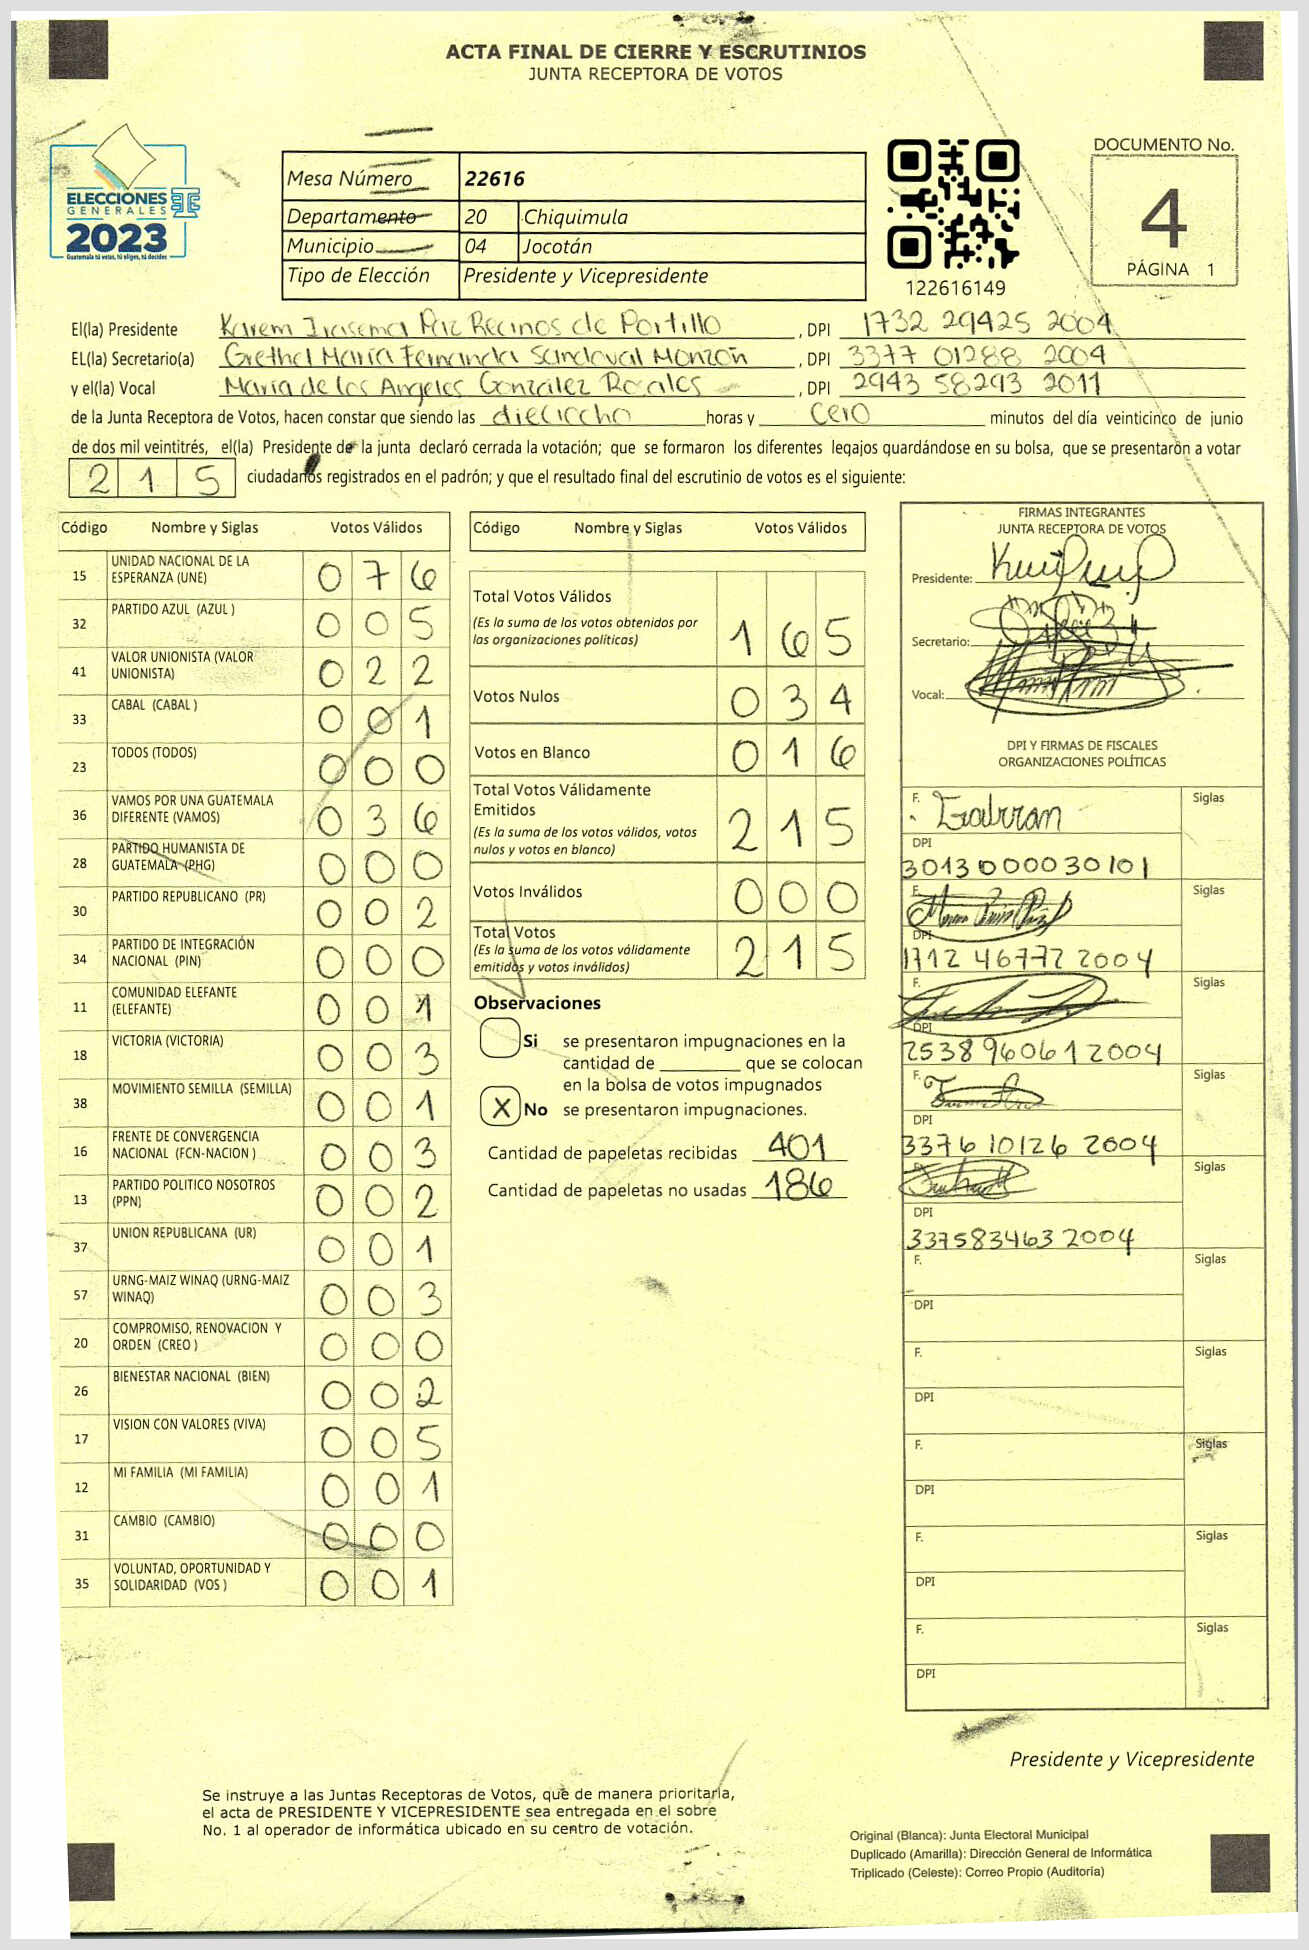 ACTA FINAL DE CIERRE Y ESCRUTINIOS
JUNTA RECEPTORA DE VOTOS
ELECCIONES
GENERALES
2023
Guatemala tú votas, tú eliges, tú decides
Mesa Número 22616
Departamento 20 Chiquimula
Municipio 04 Jocotán
Tipo de Elección Presidente y Vicepresidente
122616149
DOCUMENTO No.
4
PÁGINA 1
El(la) Presidente Karem Irasema Paz Recinos de Portillo, DPI 1732 29425 2004
EL(la) Secretario(a) Grethel María Fernanda Sandoval Monzón, DPI 3377 01288 2004
y el(la) Vocal María de los Angeles González Rosales, DPI 2943 58293 2011
de la Junta Receptora de Votos, hacen constar que siendo las dieciocho horas y cero minutos del día veinticinco de junio
de dos mil veintitrés, el(la) Presidente de la junta declaró cerrada la votación; que se formaron los diferentes legajos guardándose en su bolsa, que se presentarón a votar
215 ciudadanos registrados en el padrón; y que el resultado final del escrutinio de votos es el siguiente:
Código Nombre y Siglas Votos Válidos
15 UNIDAD NACIONAL DE LA ESPERANZA (UNE) 076
32 PARTIDO AZUL (AZUL ) 005
41 VALOR UNIONISTA (VALOR UNIONISTA) 022
33 CABAL (CABAL ) 001
23 TODOS (TODOS) 000
36 VAMOS POR UNA GUATEMALA DIFERENTE (VAMOS) 036
28 PARTIDO HUMANISTA DE GUATEMALA (PHG) 000
30 PARTIDO REPUBLICANO (PR) 002
34 PARTIDO DE INTEGRACIÓN NACIONAL (PIN) 000
11 COMUNIDAD ELEFANTE (ELEFANTE) 001
18 VICTORIA (VICTORIA) 003
38 MOVIMIENTO SEMILLA (SEMILLA) 001
16 FRENTE DE CONVERGENCIA NACIONAL (FCN-NACION ) 003
13 PARTIDO POLITICO NOSOTROS (PPN) 002
37 UNION REPUBLICANA (UR) 001
57 URNG-MAIZ WINAQ (URNG-MAIZ WINAQ) 003
20 COMPROMISO, RENOVACION Y ORDEN (CREO ) 000
26 BIENESTAR NACIONAL (BIEN) 002
17 VISION CON VALORES (VIVA) 005
12 MI FAMILIA (MI FAMILIA) 001
31 CAMBIO (CAMBIO) 000
35 VOLUNTAD, OPORTUNIDAD Y SOLIDARIDAD (VOS ) 001
Código Nombre y Siglas Votos Válidos
Total Votos Válidos
(Es la suma de los votos obtenidos por
las organizaciones políticas) 165
Votos Nulos 034
Votos en Blanco 016
Total Votos Válidamente
Emitidos
(Es la suma de los votos válidos, votos
nulos y votos en blanco) 215
Votos Inválidos 000
Total Votos
(Es la suma de los votos válidamente
emitidos y votos inválidos) 215
Observaciones
Si se presentaron impugnaciones en la
cantidad de ________ que se colocan
en la bolsa de votos impugnados
X No se presentaron impugnaciones.
Cantidad de papeletas recibidas 401
Cantidad de papeletas no usadas 186
FIRMAS INTEGRANTES
JUNTA RECEPTORA DE VOTOS
Presidente:
Secretario:
Vocal:
DPI Y FIRMAS DE FISCALES
ORGANIZACIONES POLÍTICAS
F. Siglas
DPI
3013000030101
F. Siglas
DPI
1712 46772 2004
F. Siglas
DPI
2538960612004
F. Siglas
DPI
3376 10126 2004
Siglas
DPI
337583463 2004
F. Siglas
DPI
F. Siglas
DPI
F. Siglas
DPI
F. Siglas
DPI
F. Siglas
DPI
Presidente y Vicepresidente
Se instruye a las Juntas Receptoras de Votos, que de manera prioritaria,
el acta de PRESIDENTE Y VICEPRESIDENTE sea entregada en el sobre
No. 1 al operador de informática ubicado en su centro de votación.
Original (Blanca): Junta Electoral Municipal
Duplicado (Amarilla): Dirección General de Informática
Triplicado (Celeste): Correo Propio (Auditoría)